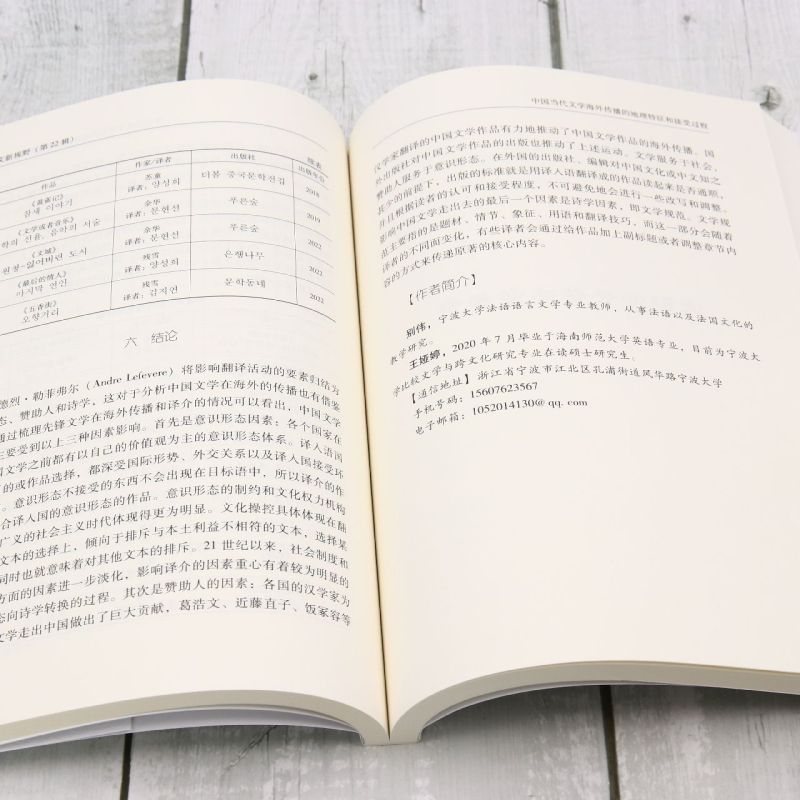 文新视野（第22辑）
续表
作品 作家/译者 出版社 出版年份
《黄雀记》 참새 이야기 苏童 译者：양성희 더봄 중국문학전집 2018
《文学或者音乐》 학의 선율, 음악의 서술 余华 译者：문현선 푸른숲 2019
《文城》 원청-잃어버린 도시 余华 译者：문현선 푸른숲 2022
《最后的情人》 마지막 연인 残雪 译者：양성희 은행나무 2022
《五香街》 오향거리 残雪 译者：김지연 문학동네 2022
六 结论
德烈·勒菲弗尔（Andre Lefevere）将影响翻译活动的要素归结为
态、赞助人和诗学，这对于分析中国文学在海外的传播也有借鉴
通过梳理先锋文学在海外传播和译介的情况可以看出，中国文学
主要受到以上三种因素影响。首先是意识形态因素：各个国家在
国文学之前都有以自己的价值观为主的意识形态体系。译入语国
的或作品选择，都深受国际形势、外交关系以及译入国接受环
。意识形态不接受的东西不会出现在目标语中，所以译介的作
合译入国的意识形态的作品。意识形态的制约和文化权力机构
广义的社会主义时代体现得更为明显。文化操控具体体现在翻
文本的选择上，倾向于排斥与本土利益不相符的文本，选择某
同时也就意味着对其他文本的排斥。21世纪以来，社会制度和
方面的因素进一步淡化，影响译介的因素重心有着较为明显的
态向诗学转换的过程。其次是赞助人的因素：各国的汉学家为
文学走出中国做出了巨大贡献，葛浩文、近藤直子、饭冢容等
中国当代文学海外传播的地理特征和接受过程
汉学家翻译的中国文学作品有力地推动了中国文学作品的海外传播。国
外出版社对中国文学作品的出版也推动了上述运动。文学服务于社会，
赞助人服务于意识形态。在外国的出版社、编辑对中国文化或中文知之
甚少的前提下，出版的标准就是用译人语翻译成的作品读起来是否通顺，
并且根据读者的认可和接受程度，不可避免地会进行一些改写和调整。
影响中国文学走出去的最后一个因素是诗学因素，即文学规范。文学规
范主要指的是题材、情节、象征、用语和翻译技巧，而这一部分会随着
译者的不同而变化，有些译者会通过给作品加上副标题或者调整章节内
容的方式来传递原著的核心内容。
【作者简介】
别伟，宁波大学法语语言文学专业教师，从事法语以及法国文化的
教学研究。
王娅婷，2020年7月毕业于海南师范大学英语专业，目前为宁波大
学比较文学与跨文化研究专业在读硕士研究生。
【通信地址】浙江省宁波市江北区孔浦街道风华路宁波大学
手机号码：15607623567
电子邮箱：1052014130@qq.com